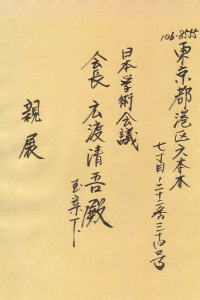 106-8555
東京都港区六本木
七丁目二十二番三十四号
日本学術会議
会長 広渡清吾殿
玉案下
親展